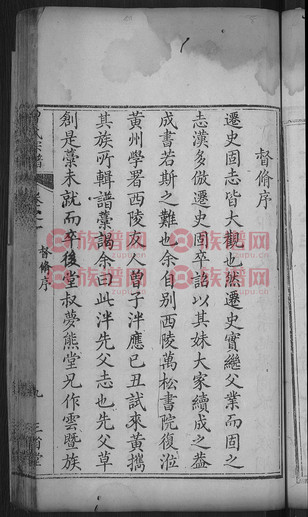 督脩序
遷史固志皆大觀也然遷史實繼父業而固之
志漢多倣遷史固卒詔以其妹大家續成之蓋
成書若斯之難也余自别西陵萬松書院復涖
黃州學署西陵友人曾子泮應已丑試來黃攜
其族所輯譜藁謁余曰此泮先父志也先父草
創是藁未就而卒後堂叔夢熊堂兄作雲曁族
督脩序
九
三省堂
族譜網
zupu.cn